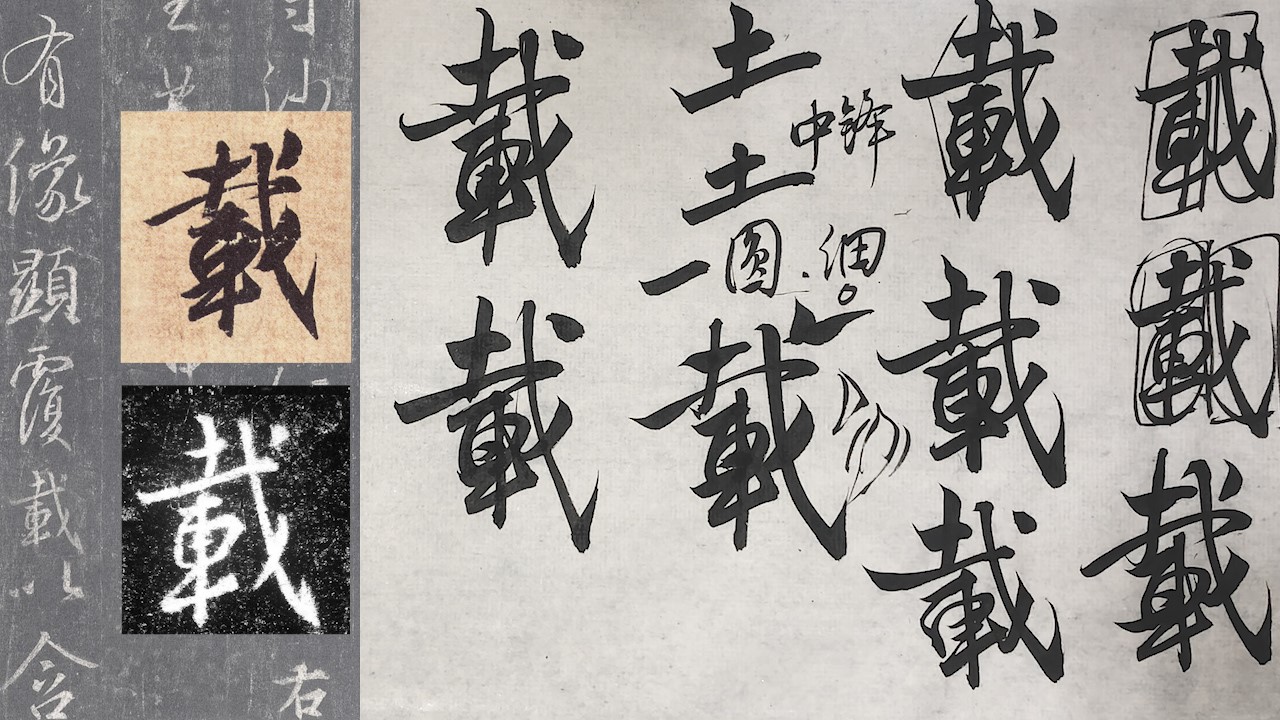 有像顯覆載以含
載
載
載載
土土一載
中鋒
圓
細
載載載
載載載
右